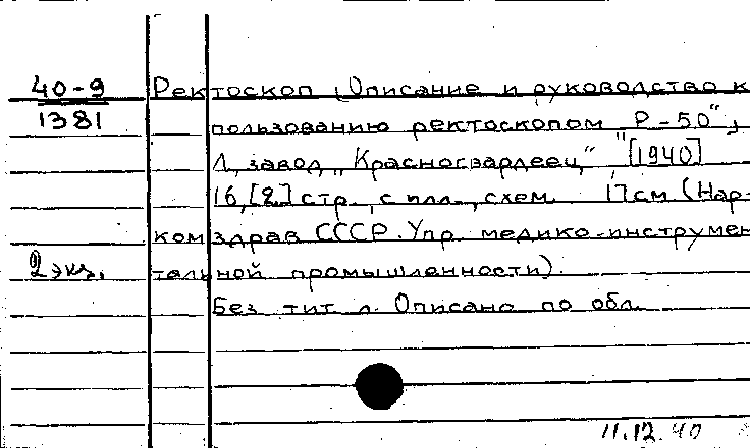 40-9 Ректоскоп (Описание и руководство к
1381 пользованию ректоскопом "Р-50",
Л, завод „Красногвардеец" [1940]
16,[2] стр., с илл., схем. 17 см (Нар-
комздрав СССР. Упр. медико-инструмен
2 экз. тальной промышленности).
Без тит. л. Описано по обл.
11.12.40